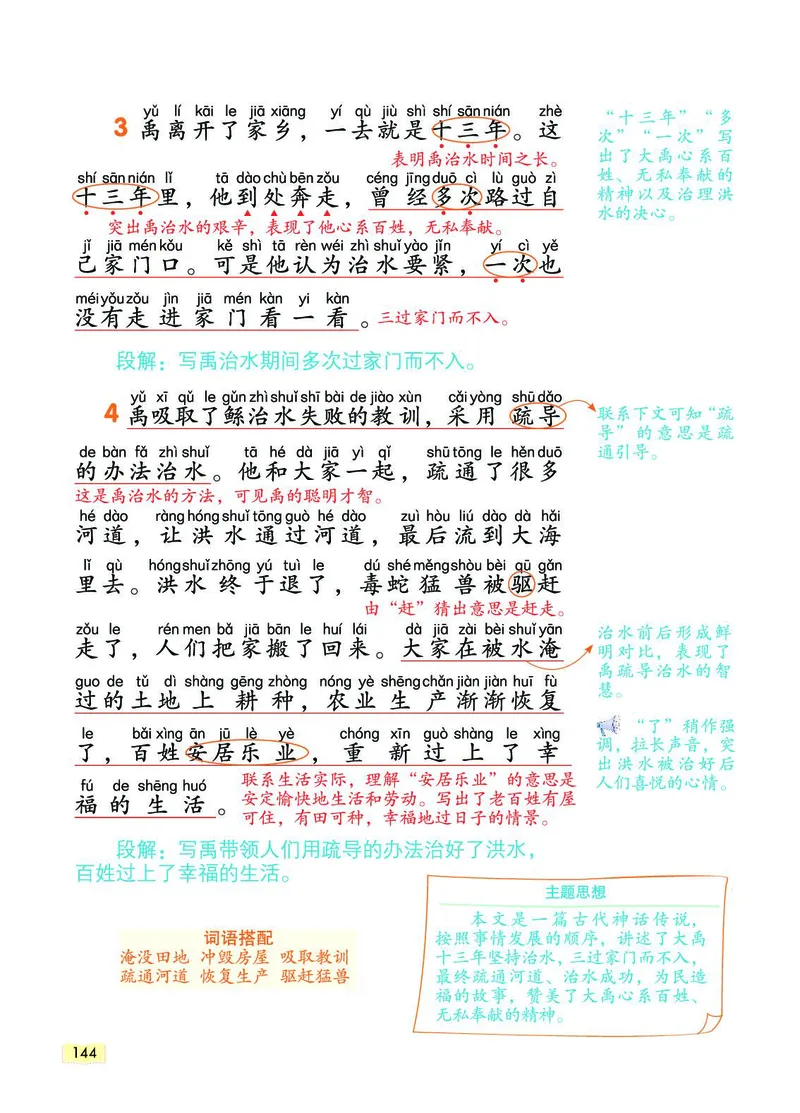 yǔ lí kāi le jiā xiāng yí qù jiù shì shí sān nián zhè
3 禹离开了家乡，一去就是十三年。这
表明禹治水时间之长。
shí sān nián lǐ tā dào chù bēn zǒu céng jīng duō cì lù guò zì
十三年里，他到处奔走，曾经多次路过自
突出禹治水的艰辛，表现了他心系百姓，无私奉献。
jǐ jiā mén kǒu kě shì tā rèn wéi zhì shuǐ yào jǐn yí cì yě
己家门口。可是他认为治水要紧，一次也
méi yǒu zǒu jìn jiā mén kàn yi kàn
没有走进家门看一看。三过家门而不入。
“十三年”“多
次”“一次”写
出了大禹心系百
姓、无私奉献的
精神以及治理洪
水的决心。
段解：写禹治水期间多次过家门而不入。
yǔ xī qǔ le gǔn zhì shuǐ shī bài de jiào xùn cǎi yòng shū dǎo
4 禹吸取了鲧治水失败的教训，采用疏导
de bàn fǎ zhì shuǐ tā hé dà jiā yì qǐ shū tōng le hěn duō
的办法治水。他和大家一起，疏通了很多
这是禹治水的方法，可见禹的聪明才智。
联系下文可知“疏
导”的意思是疏
通引导。
hé dào ràng hóng shuǐ tōng guò hé dào zuì hòu liú dào dà hǎi
河道，让洪水通过河道，最后流到大海
lǐ qù hóng shuǐ zhōng yú tuì le dú shé měng shòu bèi qū gǎn
里去。洪水终于退了，毒蛇猛兽被驱赶
由“赶”猜出意思是赶走。
zǒu le rén men bǎ jiā bān le huí lái dà jiā zài bèi shuǐ yān
走了，人们把家搬了回来。大家在被水淹
guo de tǔ dì shàng gēng zhòng nóng yè shēng chǎn jiàn jiàn huī fù
过的土地上耕种，农业生产渐渐恢复
le bǎi xìng ān jū lè yè chóng xīn guò shàng le xìng
了，百姓安居乐业，重新过上了幸
fú de shēng huó
福的生活。
联系生活实际，理解“安居乐业”的意思是
安定愉快地生活和劳动。写出了老百姓有屋
可住，有田可种，幸福地过日子的情景。
治水前后形成鲜
明对比，表现了
禹疏导治水的智
慧。
“了”稍作强
调，拉长声音，突
出洪水被治好后
人们喜悦的心情。
段解：写禹带领人们用疏导的办法治好了洪水，
百姓过上了幸福的生活。
词语搭配
淹没田地 冲毁房屋 吸取教训
疏通河道 恢复生产 驱赶猛兽
主题思想
本文是一篇古代神话传说，
按照事情发展的顺序，讲述了大禹
十三年坚持治水，三过家门而不入，
最终疏通河道、治水成功，为民造
福的故事，赞美了大禹心系百姓、
无私奉献的精神。
144